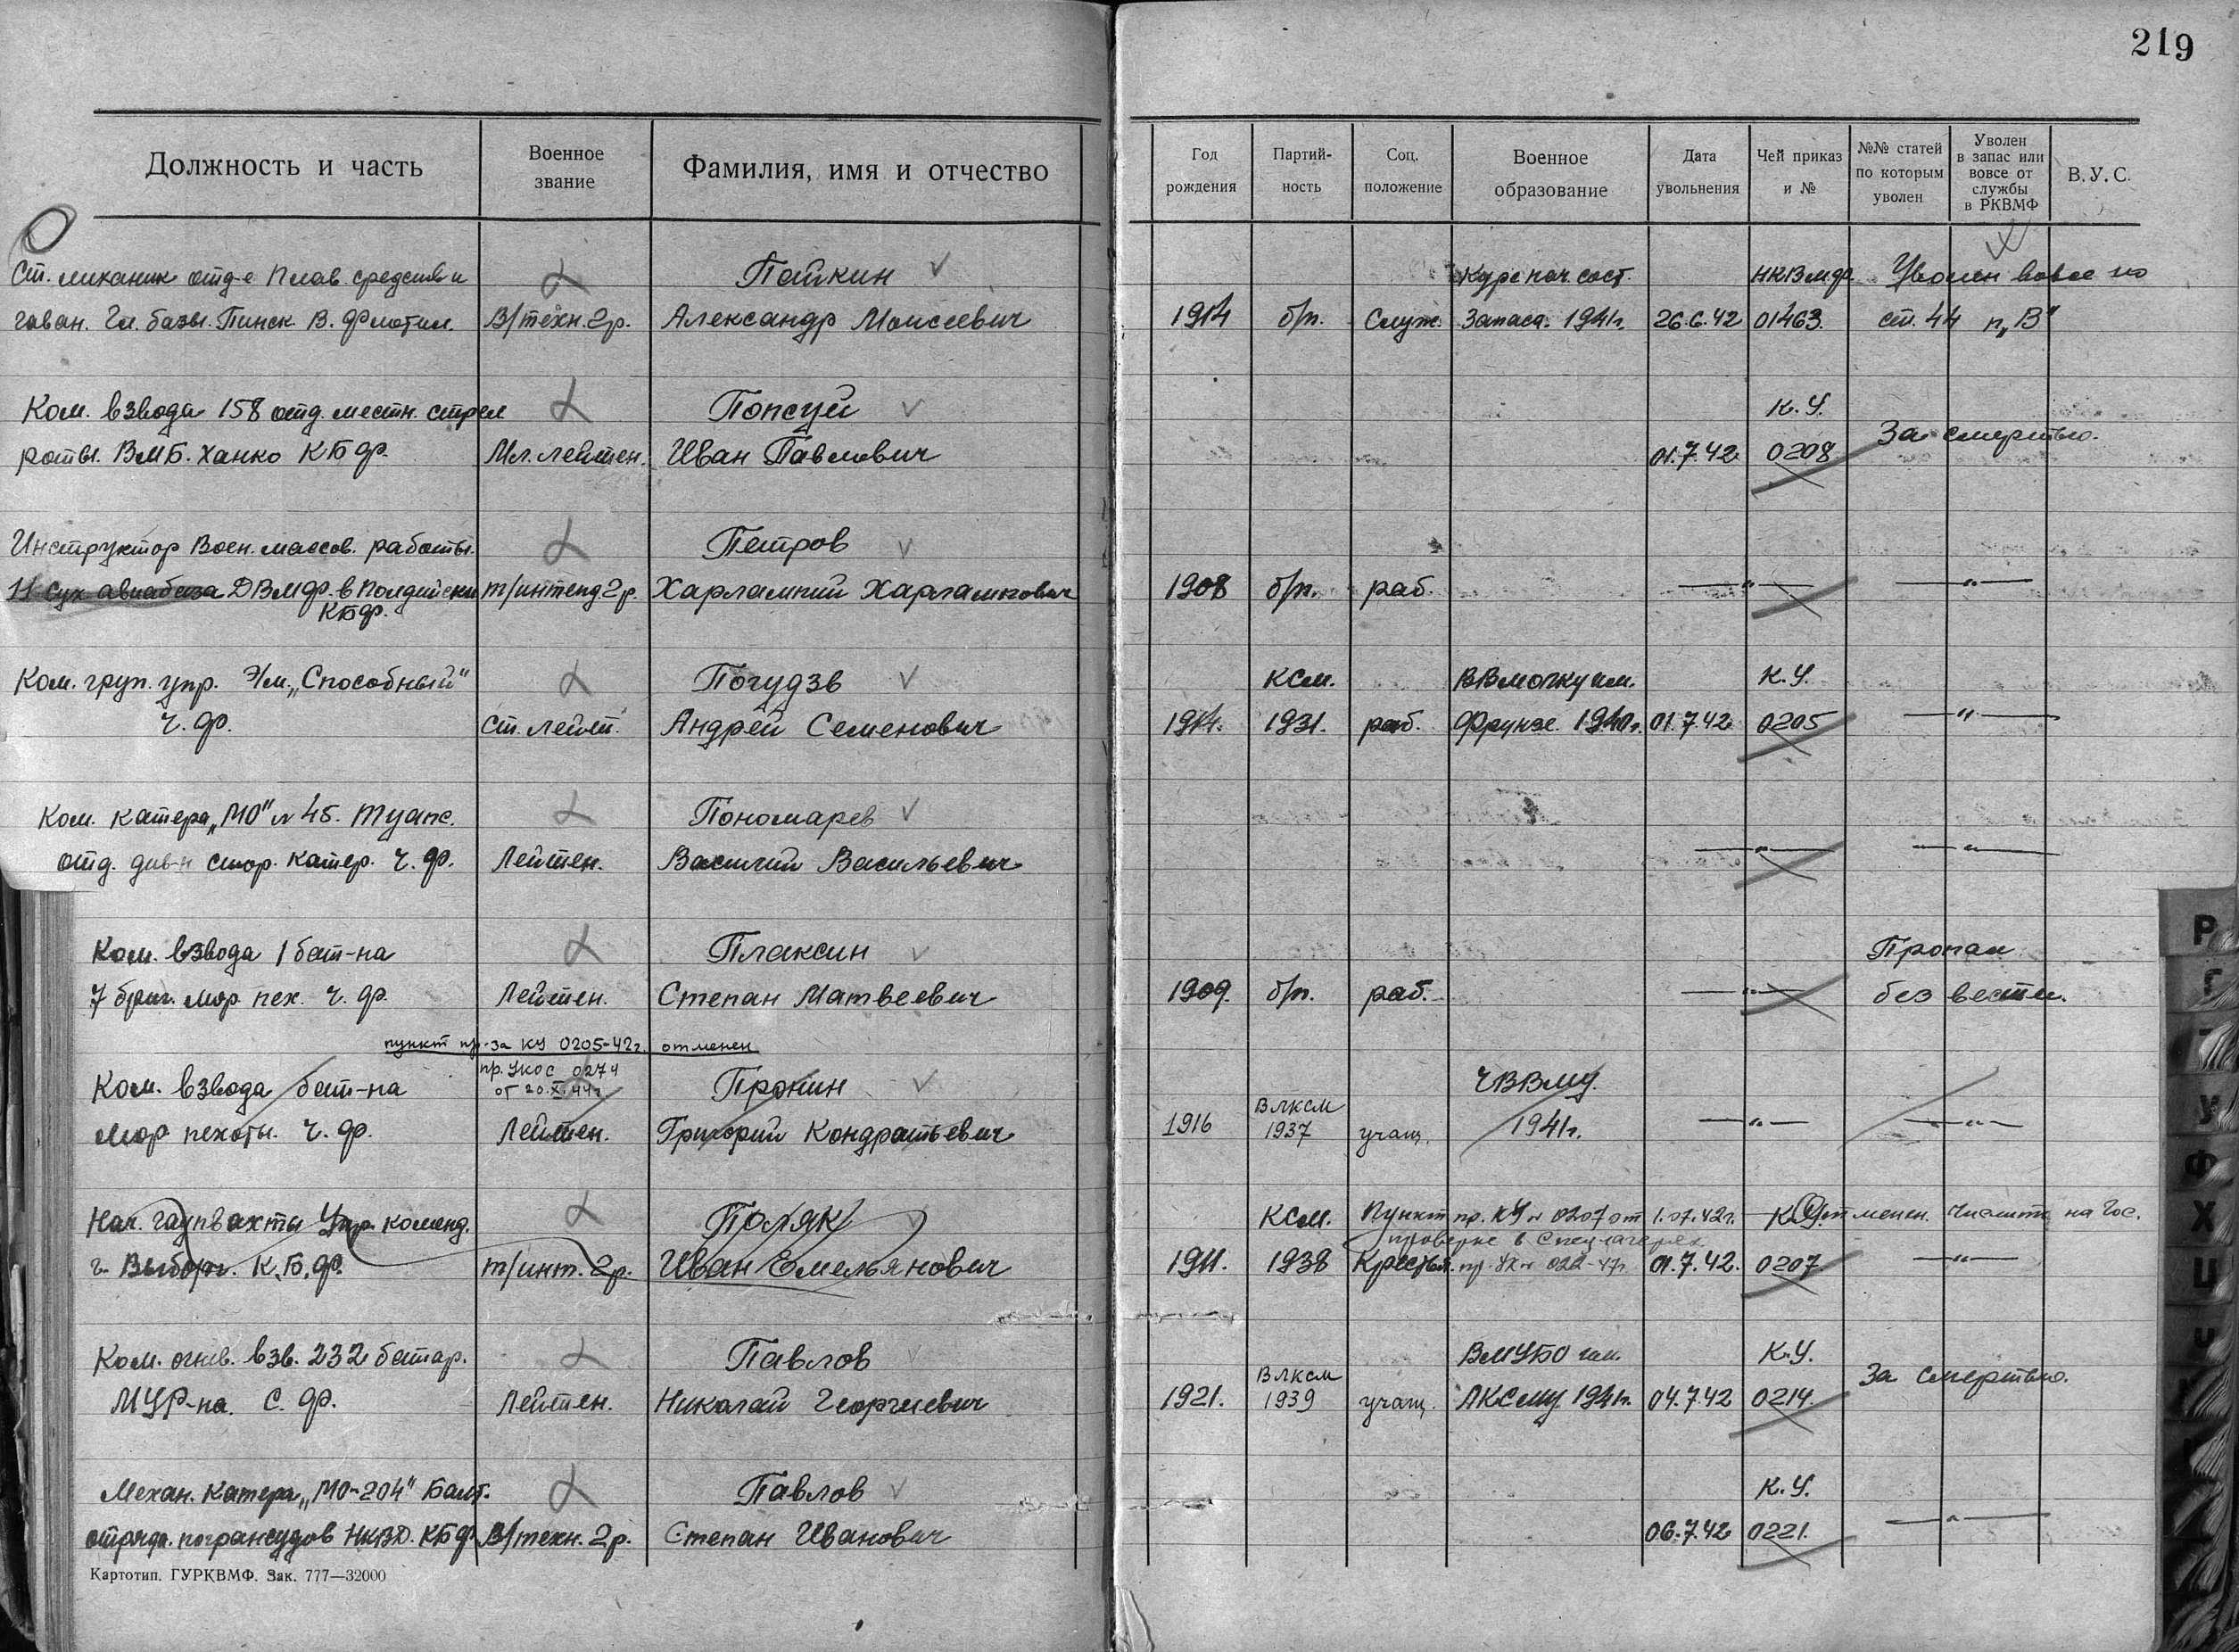 219
Должность и часть
Военное звание
Фамилия, имя и отчество
Год рождения
Партий-ность
Соц. положение
Военное образование
Дата увольнения
Чей приказ и №
№№ статей по которым уволен
Уволен в запас или вовсе от службы в РКВМФ
В. У. С.
Ст. механик отд-е Плав. средств и Пайкин Курс нач. сост. НКВмф Уволен вовсе по
гаван. Гл. базы. Пинск. В. Флотил. В/техн. 2р. Александр Моисеевич 1914 б/п. Служ. Запаса. 1941г. 26.6.42 01463. ст. 44 п„В"
Ком. взвода 158 отд. местн. стрел Попсуй К.У.
роты. ВМБ. Ханко КБф. Мл. лейтен. Иван Павлович 01.7.42 0208 За смертью.
Инструктор Воен. массов. работы. Петров
11 Сух. авиабаза ДВМФ. в Палдийски т/интенд 2р. Харлампий Харлампович 1908 б/п. раб. —"— —"—
КБф.
Ком. груп. упр. Э/м. „Способный" Погудзв КСм. ВВмочку им. К.У.
Ч. ф. Ст. лейт. Андрей Семенович 1914. 1931. раб. Фрунзе. 1940г. 01.7.42 0205 —"—
Ком. катера „МО" № 45. Туапс. Пономарев
отд. див-н стор. катер. Ч. ф. Лейтен. Василий Васильевич —"— —"—
Ком. взвода 1 бат-на Плаксин Пропал
7 бриг. мор. пех. Ч. ф. Лейтен. Степан Матвеевич 1909. б/п. раб. —"— без вести.
пункт пр-за КУ 0205-42г. отменен
пр. УКОС 0274
Ком. взвода бат-на от 20.X.44г. Пронин ЧВВМУ.
мор пехоты. Ч. ф. Лейтен. Григорий Кондратьевич 1916 ВЛКСМ 1937 учащ. 1941г. —"— —"—
Нач. гауптвахты Упр. команд. Поляк КСм. Пункт пр. КУ № 0207 от 1.07.42г. К.У. Отменен. Числить на Гос.
проверке в Спецлагерях
г. Выборг. К.Б.ф. т/инт. 2р. Иван Емельянович 1911. 1938 Крестьян. 01.7.42. 0207 —"—
Ком. огнев. взв. 232 батар. Павлов ВМУБО им. К.У.
МУР-на. С. ф. Лейтен. Николай Георгиевич 1921. ВЛКСМ 1939 учащ. ЛКСМУ 1941г. 04.7.42 0214. За смертью.
Механ. катера „МО-204" Балт. Павлов К.У.
отряда. погрансудов НКВД. КБф В/техн. 2р. Степан Иванович 06.7.42 0221. —"—
Картотип. ГУРКВМФ. Зак. 777—32000
Р
У
Ф
Х
Ц
Ч